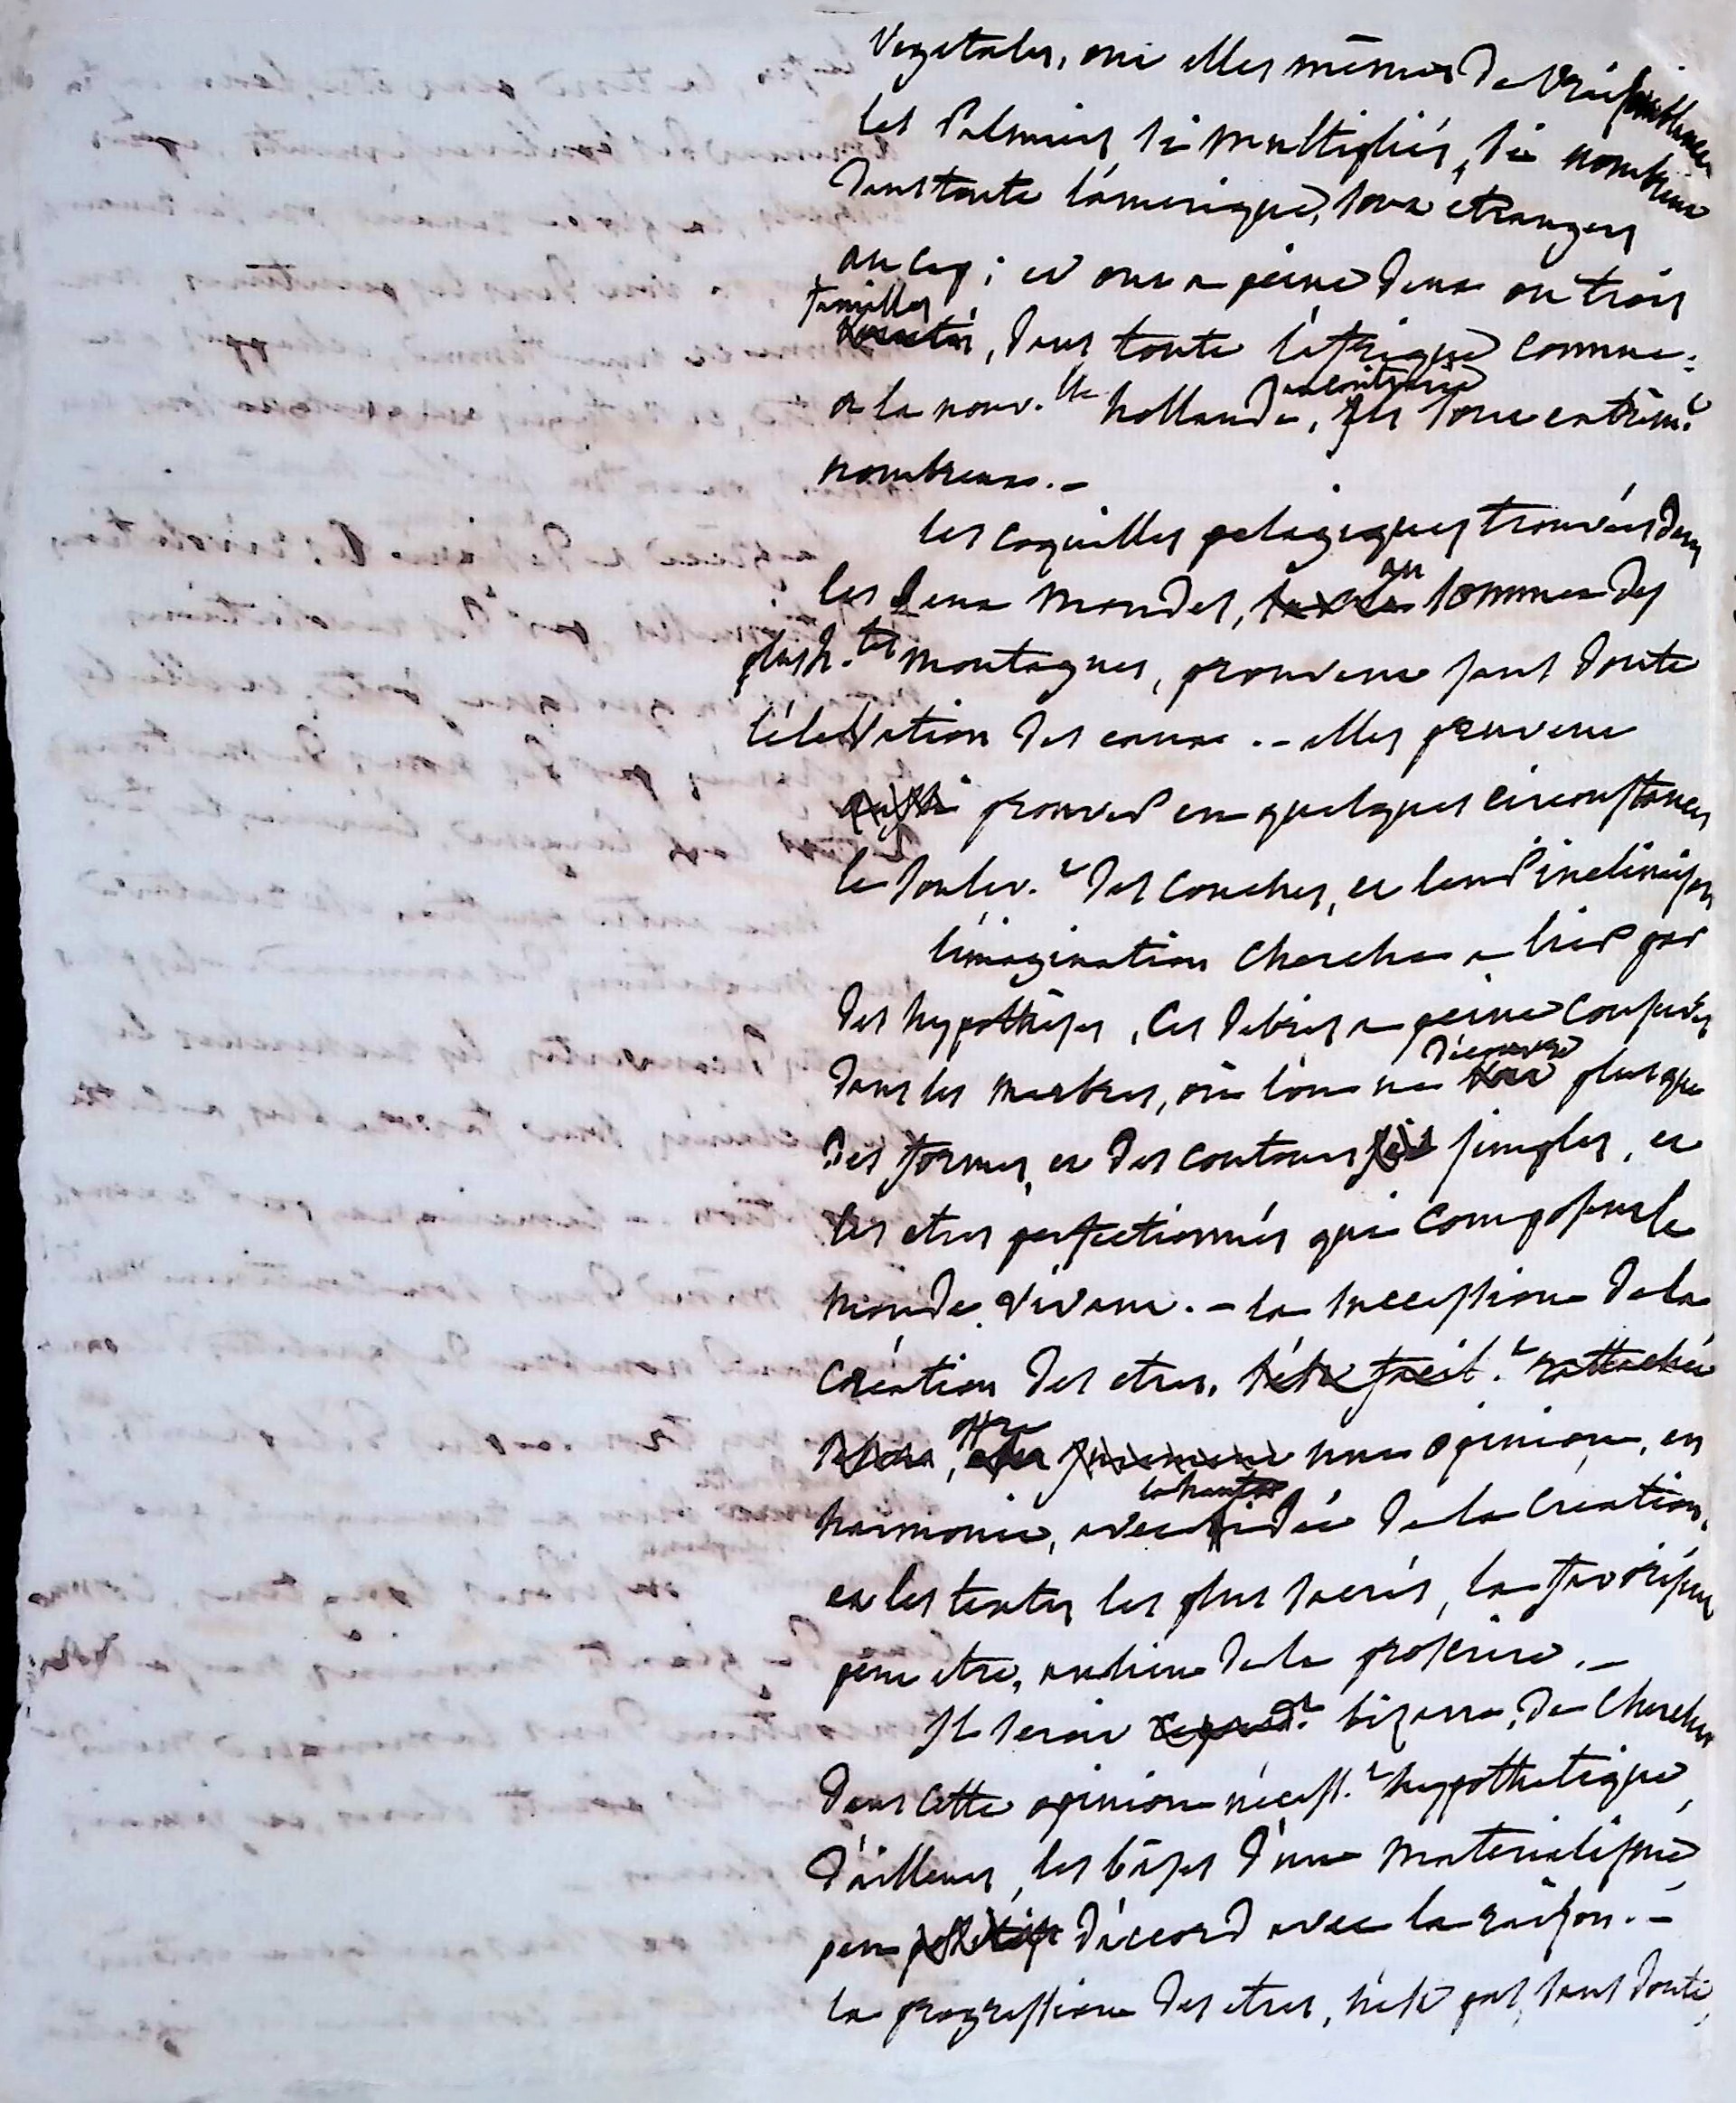 vegetales, oni elles mêmes de vraisemblances
les Palmiers si multipliés, si nombreux
dans toute l'amerique, sont etrangers
au cap ; et on a peine deux ou trois
familles
, dans toute l'afrique comme
a la nouv.lle hollande, au contraire ils sont extrêm.t
nombreux. -
les coquilles pelagiques trouvées dans
les deux mondes, sur les au sommet des
plus h.tes montagnes, prouvent sans doute
l'élévation des eaux .- elles peuvent
aussi prouver en quelques circonstances
le soulev.t des couches, et leur inclinaison
l'imagination cherche a lier par
des hypothèses, ces debris a peine conservés
dans les marbres, où l'on ne voit découvre plus que
des formes, et des contours si simples, et
les etres perfectionnés qui composent le
monde vivant. - la succession de la
création des etres, facil.t rattachée
offre une opinion, en
harmonie, avec la haute idée de la création,
et les textes les plus sacrés, la favorisent
peut etre, au lieu de la proscrire. -
Il serait bizarre, de chercher
dans cette opinion nécess.t hypothetique,
d'ailleurs, les bâses d'un materialisme,
peu d'accord avec la raison. -
la progression des etres, n'est pas, sans doute,